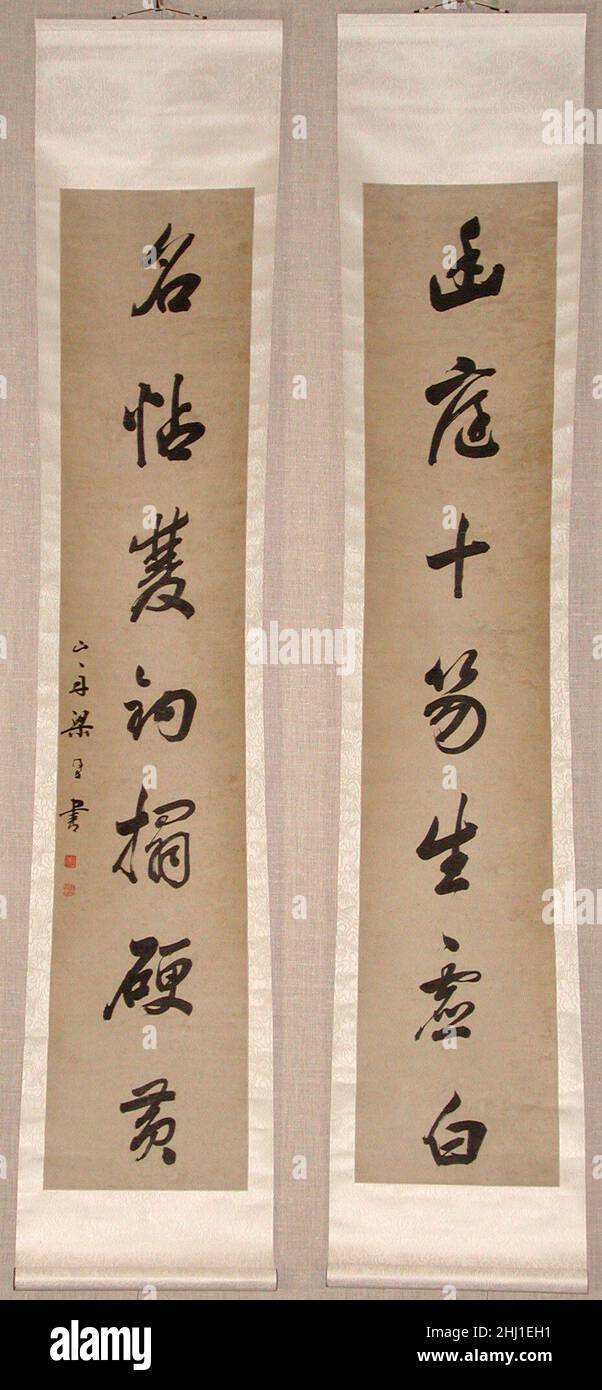 幽庭十笏生虛白
名帖雙鉤搨硬黃
山舟梁同書
alamy
alamy
alamy
alamy
Image ID: 2HJ1EH1
www.alamy.com